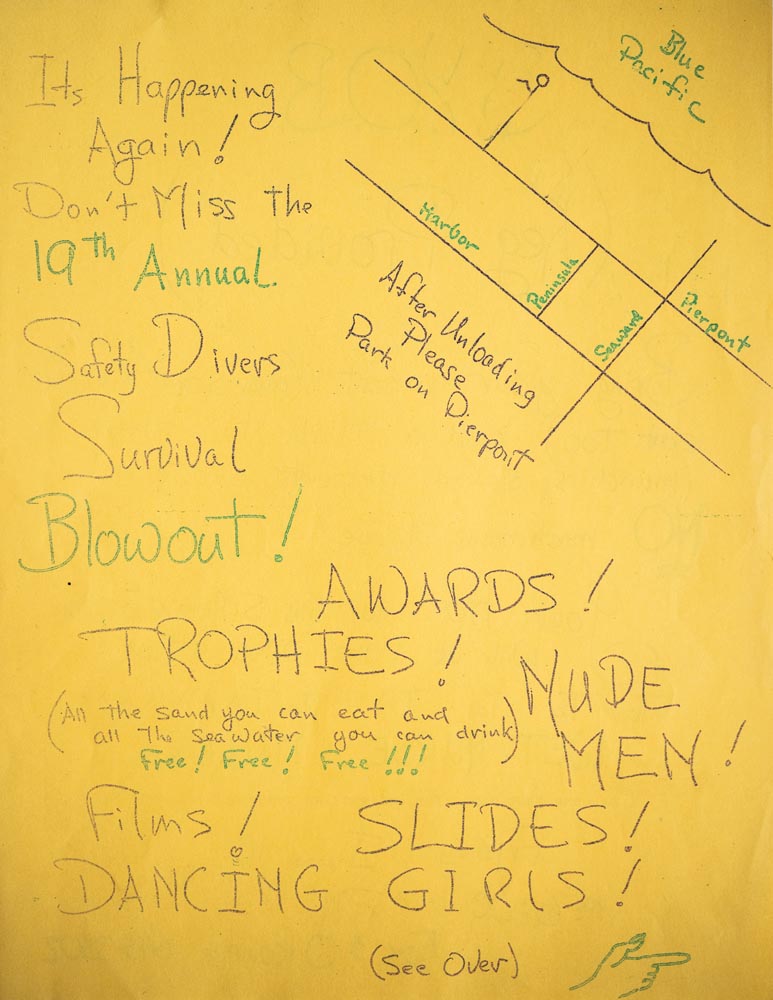 Its Happening
Again!
Don't Miss The
19th Annual
Safety Divers
Survival
Blowout!
Blue
Pacific
Harbor
Peninsula
Seaward
Pierpont
After Unloading
Please
Park on Pierpont
AWARDS!
TROPHIES!
NUDE
MEN!
(All the sand you can eat and
all the seawater you can drink)
Free! Free! Free!!!
Films!
SLIDES!
DANCING GIRLS!
(See Over)